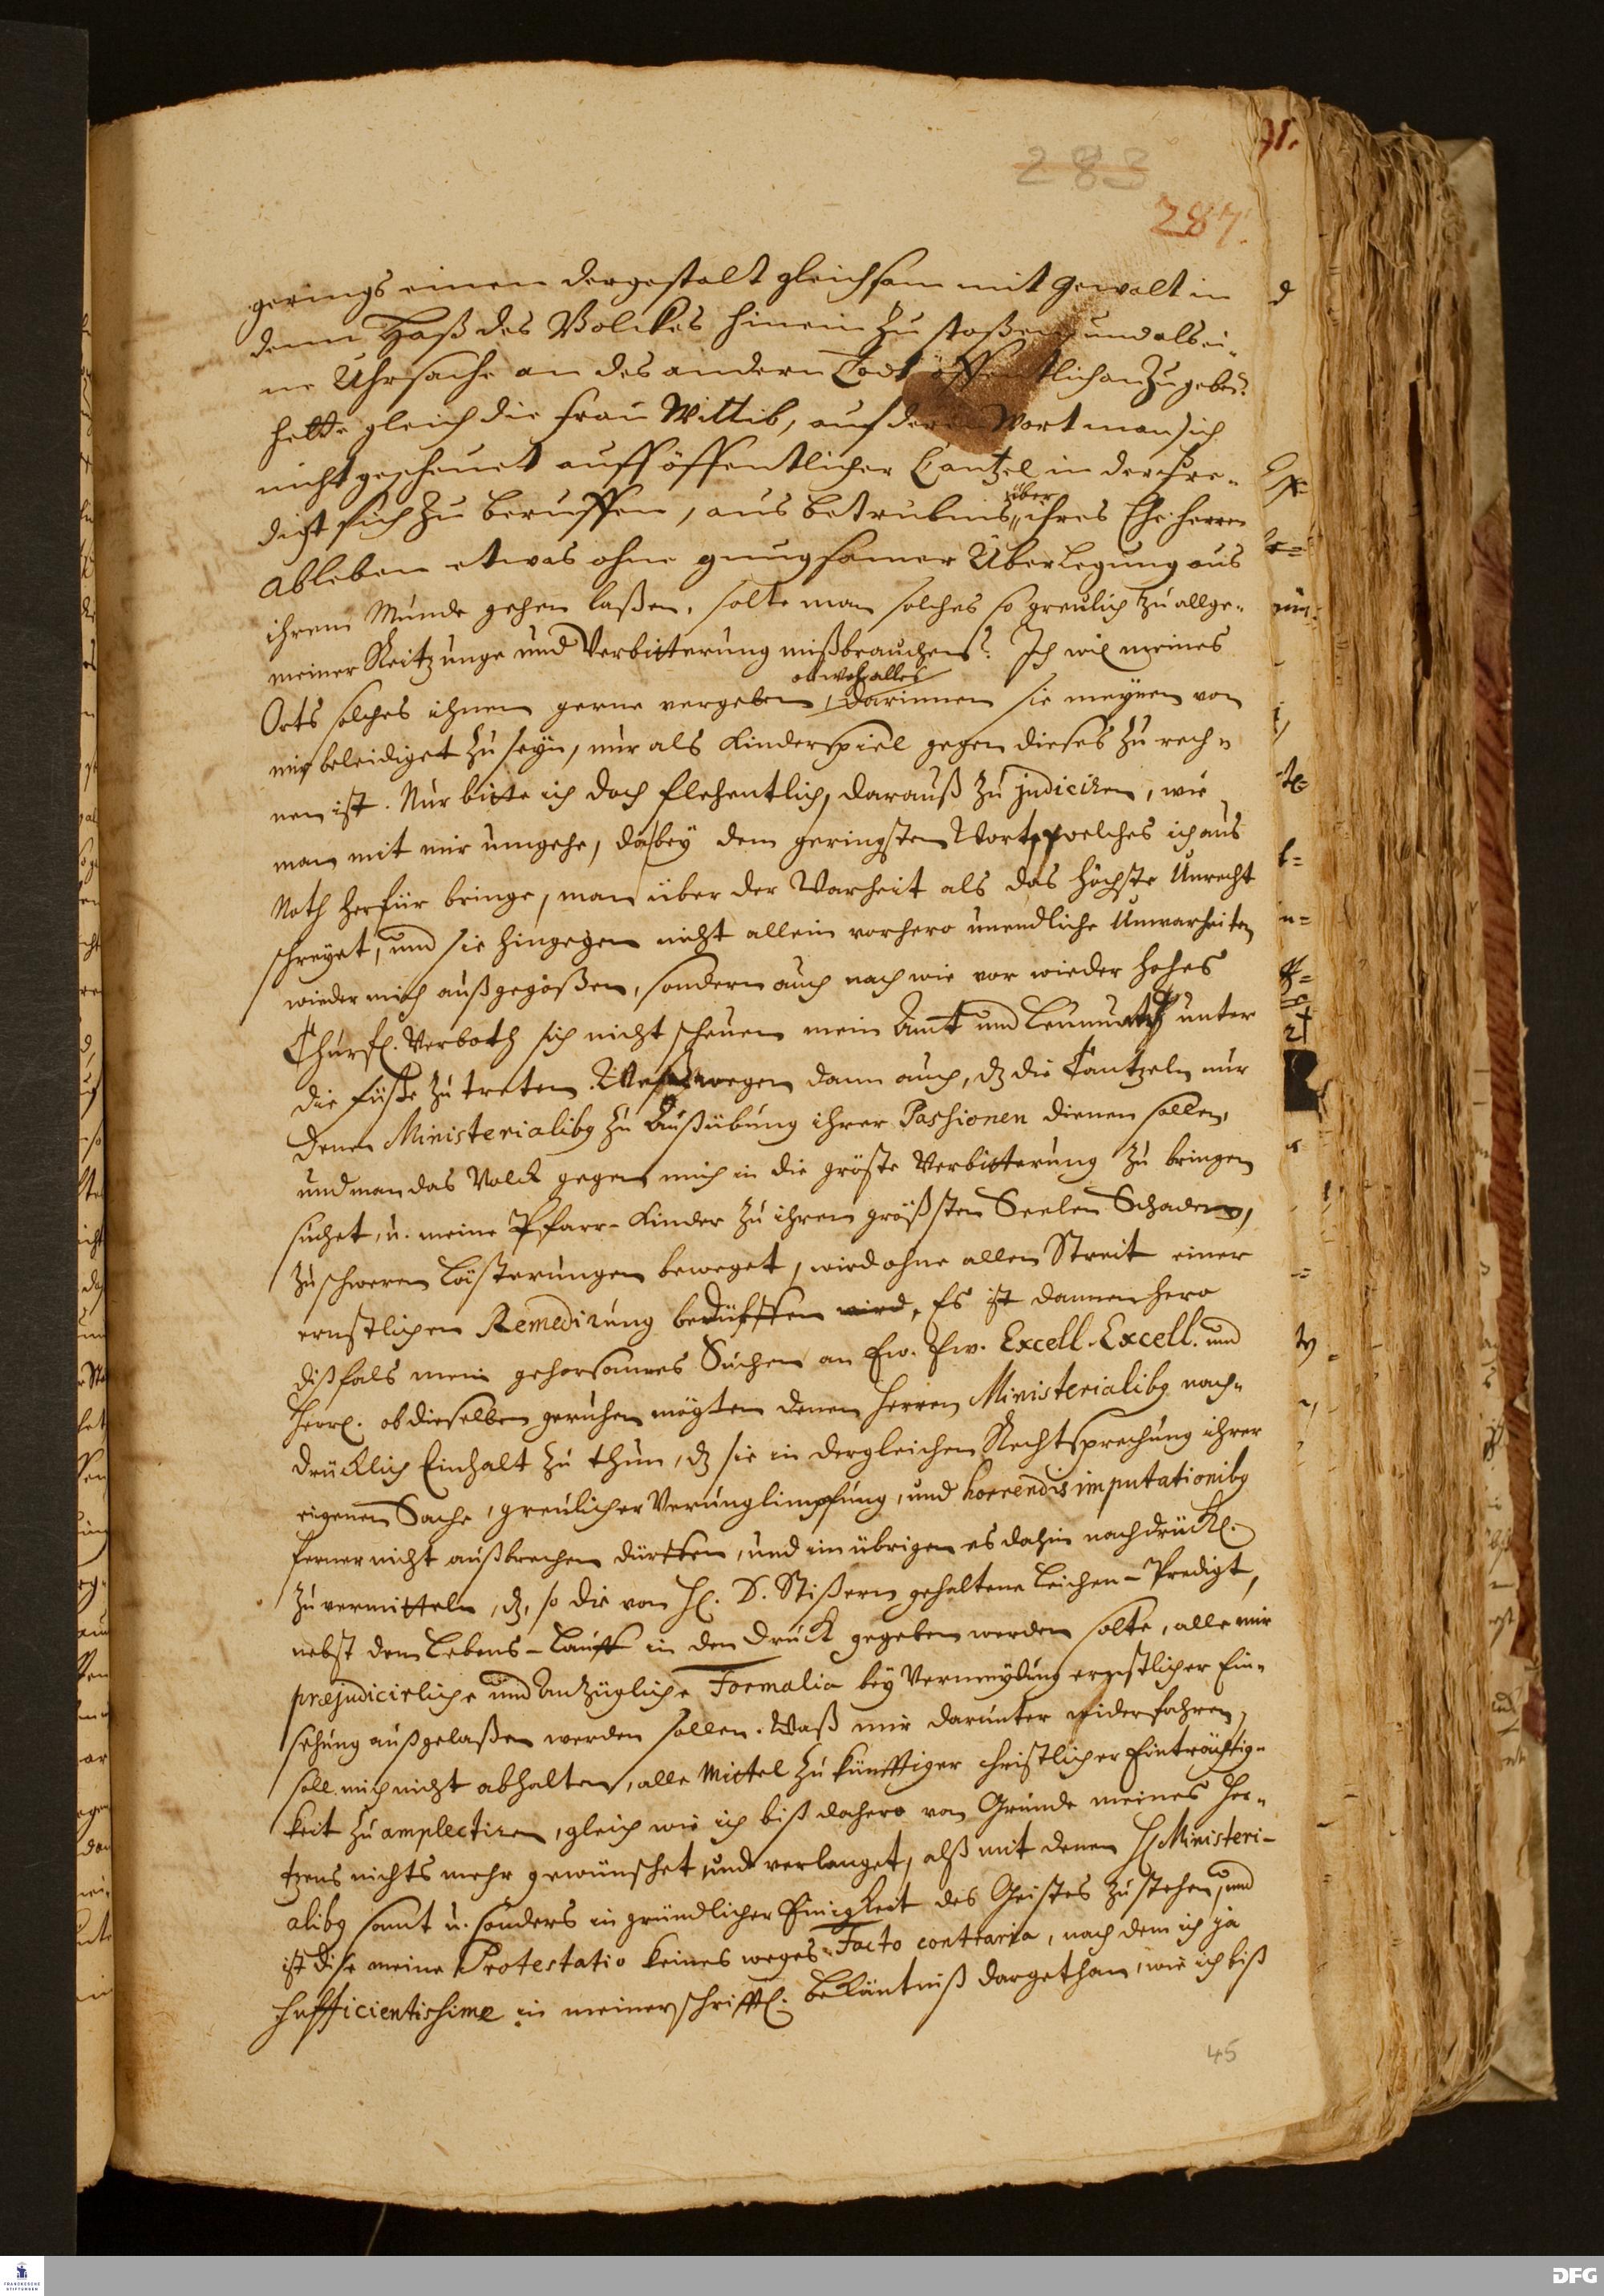 283
287.
gerings einen dergestalt gleichsam mit gewalt in
denn Haß des Volckes hinein zu stoßen, und als ei-
ne Uhrsache an des andern Todt öffentlich anzugeben?
hette gleich die Frau Wittib, auf deren Wort man sich
nicht gescheuet auff öffentlicher Cantzel in der Pre-
digt sich zu beruffen, aus betrubnis über ihres Ehe-Herren
ableben etwas ohne gnugsamer Überlegung aus
ihrem Munde gehen laßen, solte man solches so greulich zu allge-
meiner Reitzunge und Verbitterung mißbrauchen? Ich wil meines
Orts solches ihnen gerne vergeben, obwohl alles darinnen sie meynen von
mir beleidiget zu seyn, nur als Kinderspiel gegen dieses zu rech-
nen ist. Nur bitte ich doch flehentlich, darauß zu judiciren, wie
man mit mir umgehe, da bey dem geringsten Wort, welches ich aus
Noth herfür bringe, man über der Warheit als das höchste Unrecht
schreyet, und sie hingegen nicht allein vorhero unendliche Unwarheiten
wieder mich außgegoßen, sondern auch nach wie vor wieder hohes
Churfl. Verboth sich nicht scheuen mein Amt und Leumuth unter
die füße zu treten. Weßwegen dann auch, dz die Cantzeln nur
denen Ministerialibg zu Außübung ihrer Passionen dienen sollen,
und man das Volck gegen mich in die gröste Verbitterung zu bringen
suchet, u. meine Pfarr-Kinder zu ihren größsten Seelen Schaden,
zu schweren Lästerungen beweget, wird ohne allen Streit einer
ernstlichen Remedirung bedürffen wird. Es ist dannenhero
dißfals mein gehorsames Suchen an Ew. Ew. Excell. Excell. und
Herrl. ob dieselben geruhen mögten denen Herren Ministerialibg nach-
drücklich Einhalt zu thun, dz sie in dergleichen Rechtsprechung ihrer
eigenen Sache, greulicher Verunglimpfung, und horrendis imputationibg
ferner nicht außbrechen dürffen, und im übrigen es dahin nachdrückl.
zu vermitteln, dz, so die von H. D. Stißern gehaltene Leichen-Predigt,
nebst dem Lebens-Lauff in den Druck gegeben werden solte, alle mir
præjudicirliche und anzügliche Formalia bey Vermeydung ernstlicher Ein-
sehung außgelaßen werden sollen. Waß mir darunter widerfahren,
soll mich nicht abhalten, alle Mittel zu künfftiger christlicher Einträchtig-
keit zu amplectiren, gleich wie ich biß dahero von Grunde meines Her-
tzens nichts mehr gewünschet und verlanget, alß mit denen H. Ministeri-
alibg samt u. sonders in gründlicher Einigkeit des Geistes zu stehen, und
ist dise meine Protestatio keines weges Facto contraria, nach dem ich ja
sufficientissime in meiner schrifftl. bekäntniß dargethan, wie ich biß
45